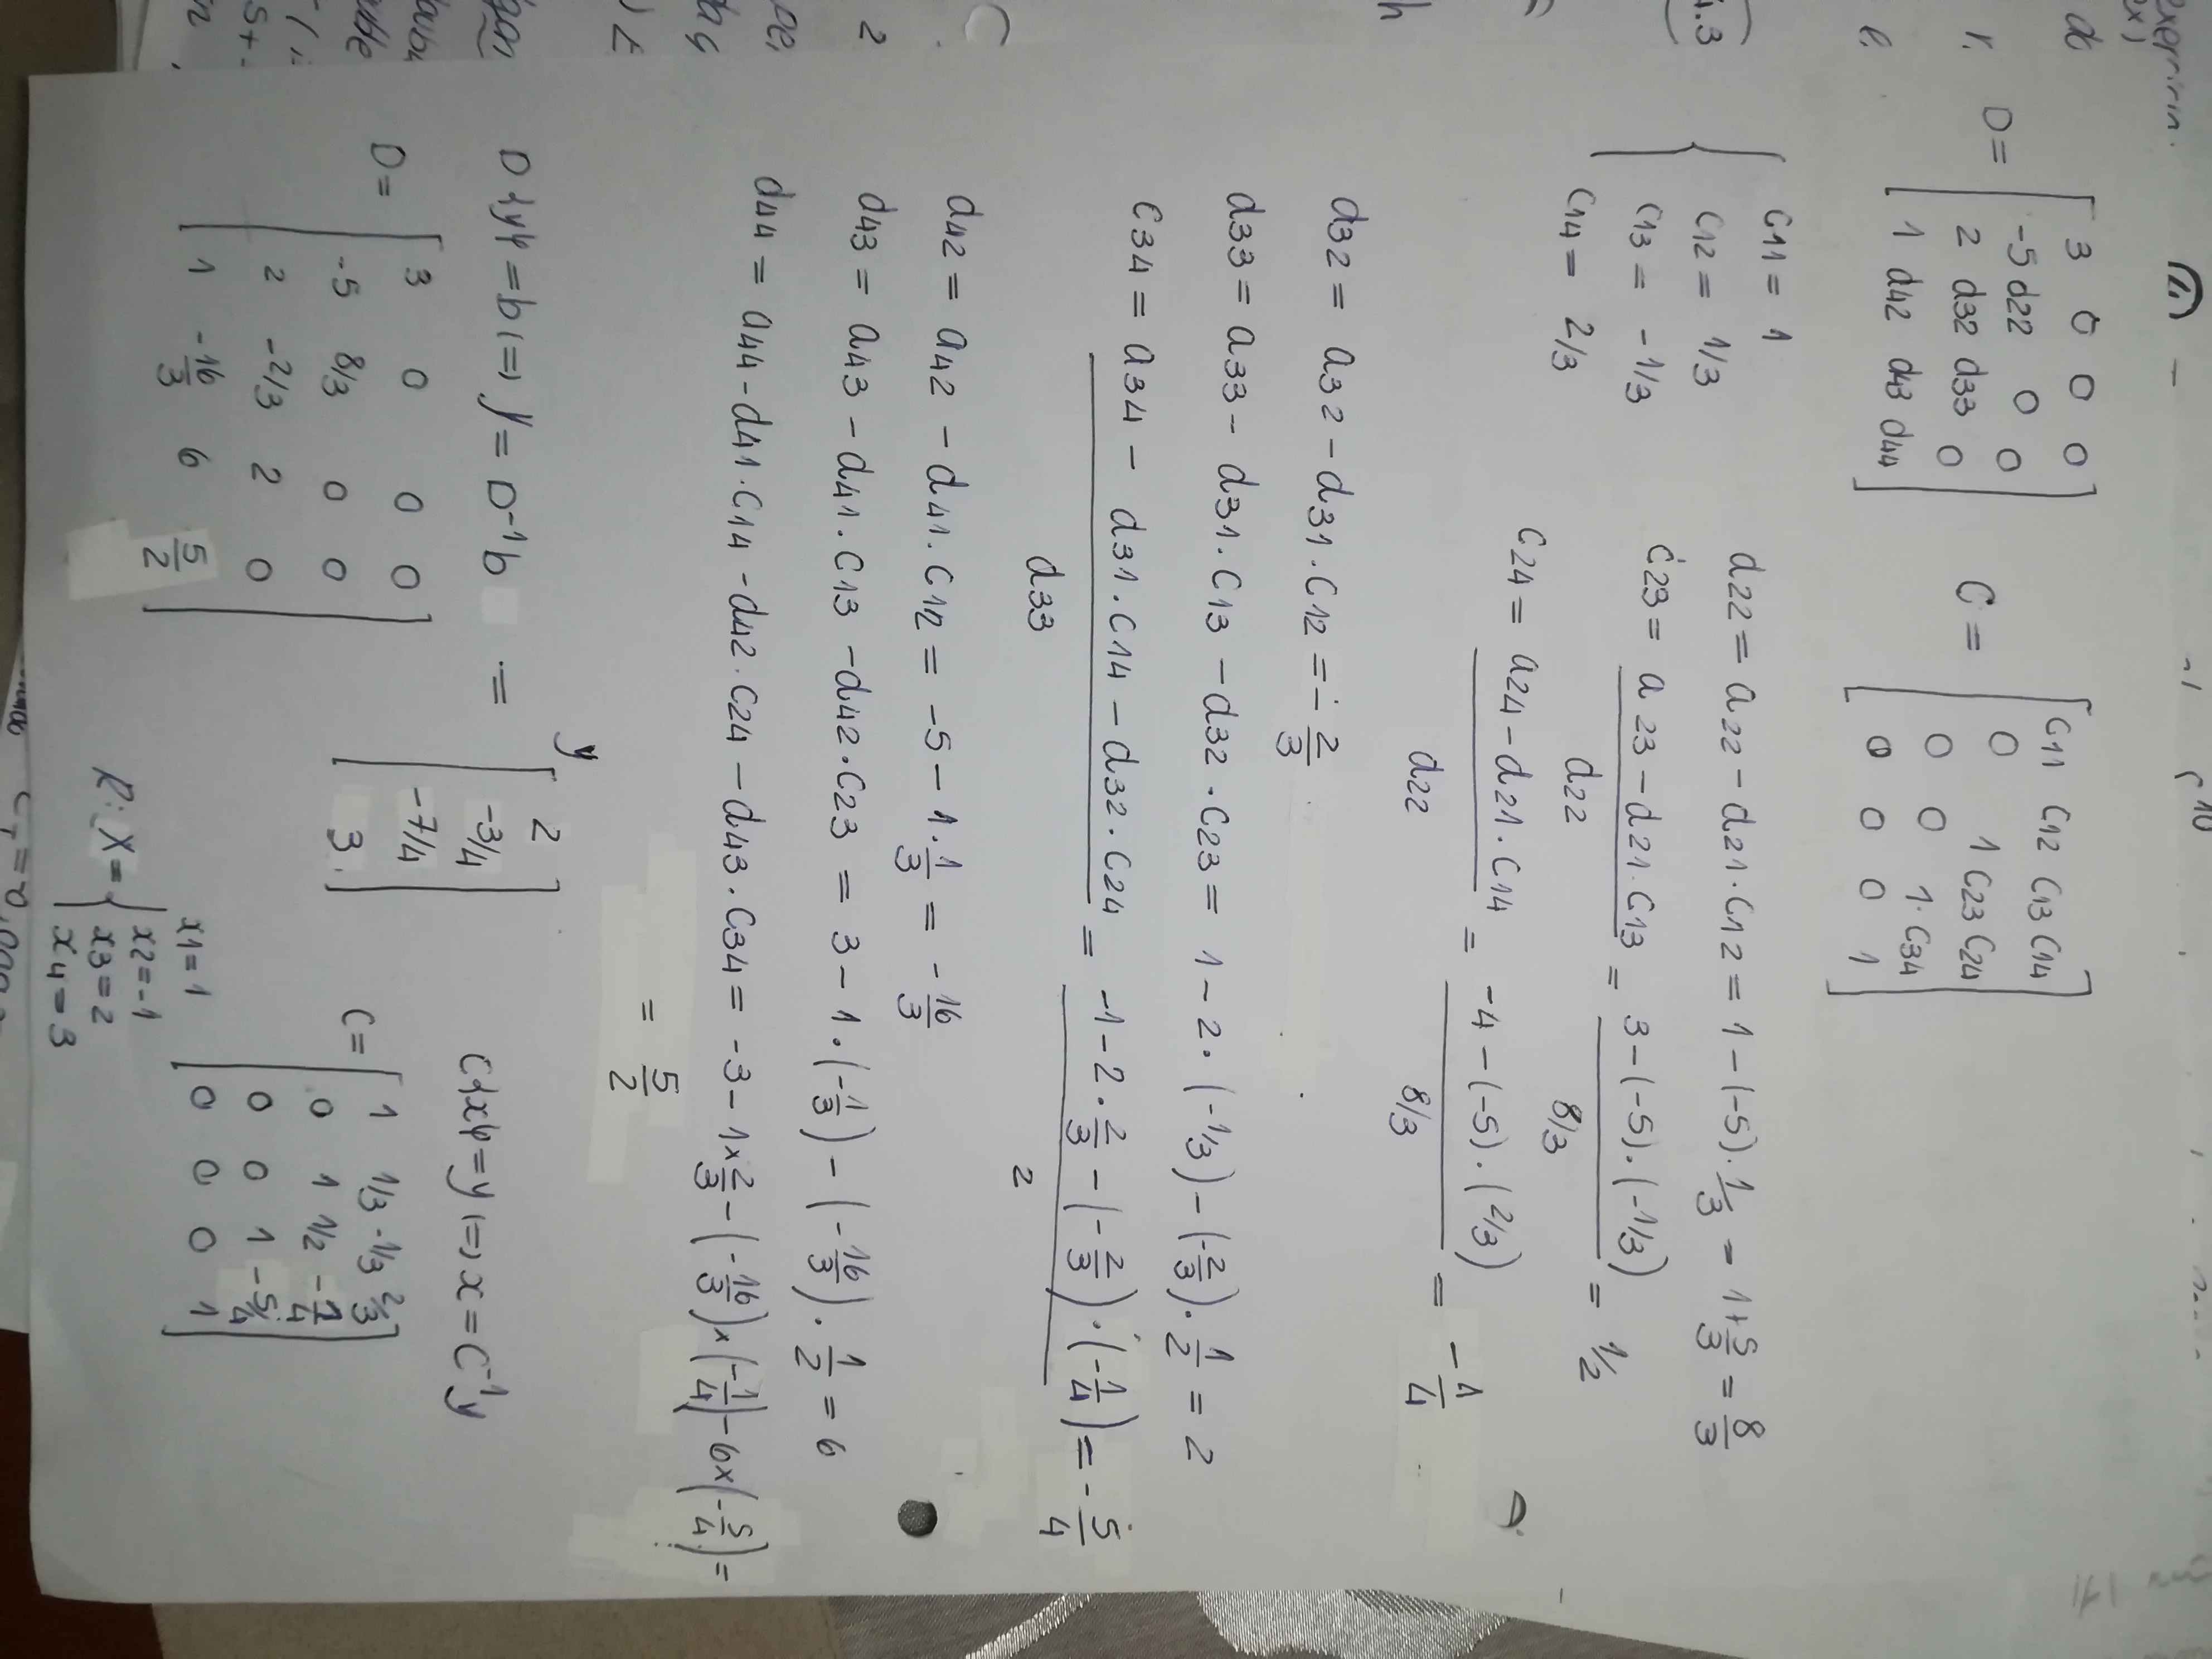 exercicio. 4
D = [ 3 0 0 0
-5 d22 0 0
2 d32 d33 0
1 d42 d43 d44 ]
C = [ C11 C12 C13 C14
0 1 C23 C24
0 0 1 C34
0 0 0 1 ]
C11 = 1
C12 = 1/3
C13 = -1/3
C14 = 2/3
d22 = a22 - d21 . C12 = 1 - (-5) . 1/3 = 1 + 5/3 = 8/3
C23 = (a23 - d21 . C13) / d22 = (3 - (-5) . (-1/3)) / (8/3) = 1/2
C24 = (a24 - d21 . C14) / d22 = (-4 - (-5) . (2/3)) / (8/3) = -1/4
d32 = a32 - d31 . C12 = - 2/3
d33 = a33 - d31 . C13 - d32 . C23 = 1 - 2 . (-1/3) - (-2/3) . 1/2 = 2
C34 = (a34 - d31 . C14 - d32 . C24) / d33 = (-1 - 2 . 2/3 - (-2/3) . (-1/4)) / 2 = -5/4
d42 = a42 - d41 . C12 = -5 - 1 . 1/3 = -16/3
d43 = a43 - d41 . C13 - d42 . C23 = 3 - 1 . (-1/3) - (-16/3) . 1/2 = 6
d44 = a44 - d41 . C14 - d42 . C24 - d43 . C34 = -3 - 1 × 2/3 - (-16/3) × (-1/4) - 6 × (-5/4) =
= 5/2
D {y} = b (=) y = D⁻¹b = y [ 2
-3/4
-7/4
3 ]
C {x} = y (=) x = C⁻¹y
D = [ 3 0 0 0
-5 8/3 0 0
2 -2/3 2 0
1 -16/3 6 5/2 ]
C = [ 1 1/3 -1/3 2/3
0 1 1/2 -1/4
0 0 1 -5/4
0 0 0 1 ]
R: X = { x1 = 1
x2 = -1
x3 = 2
x4 = 3